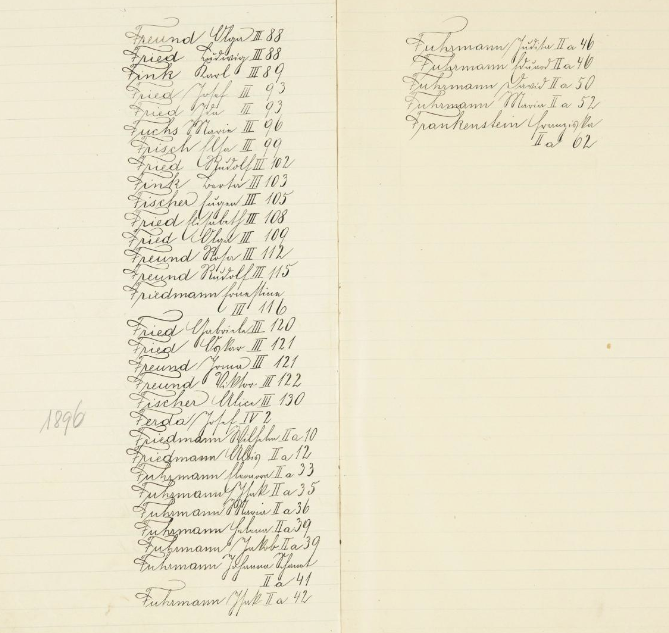 Freund Olga III 88
Fried Ludwig III 88
Fink Karl III 89
Fried Josef III 93
Fried Ida III 93
Fuchs Marie III 96
Frisch Ilse III 99
Fried Rudolf III 102
Fink Berta III 103
Fischer Eugen III 105
Fried Elisabeth III 108
Fried Olga III 109
Freund Rosa III 112
Freund Rudolf III 115
Friedmann Ernestine
III 116
Fried Gabriele III 120
Fried Oskar III 121
Freund Irma III 121
Freund Viktor III 122
Fischer Alice III 130
Ferda Josef IV 2
Friedmann Wilhelm II a 10
Friedmann Alois II a 12
Fuhrmann II a 33
Fuhrmann Isak II a 35
Fuhrmann Marie II a 36
Fuhrmann Helena II a 39
Fuhrmann Jakob II a 39
Fuhrmann Johanna
II a 41
1896
Fuhrmann Isak II a 42
Fuhrmann Judita II a 46
Fuhrmann Eduard II a 46
Fuhrmann David II a 50
Fuhrmann Maria II a 52
Frankenstein Franziska
II a 62